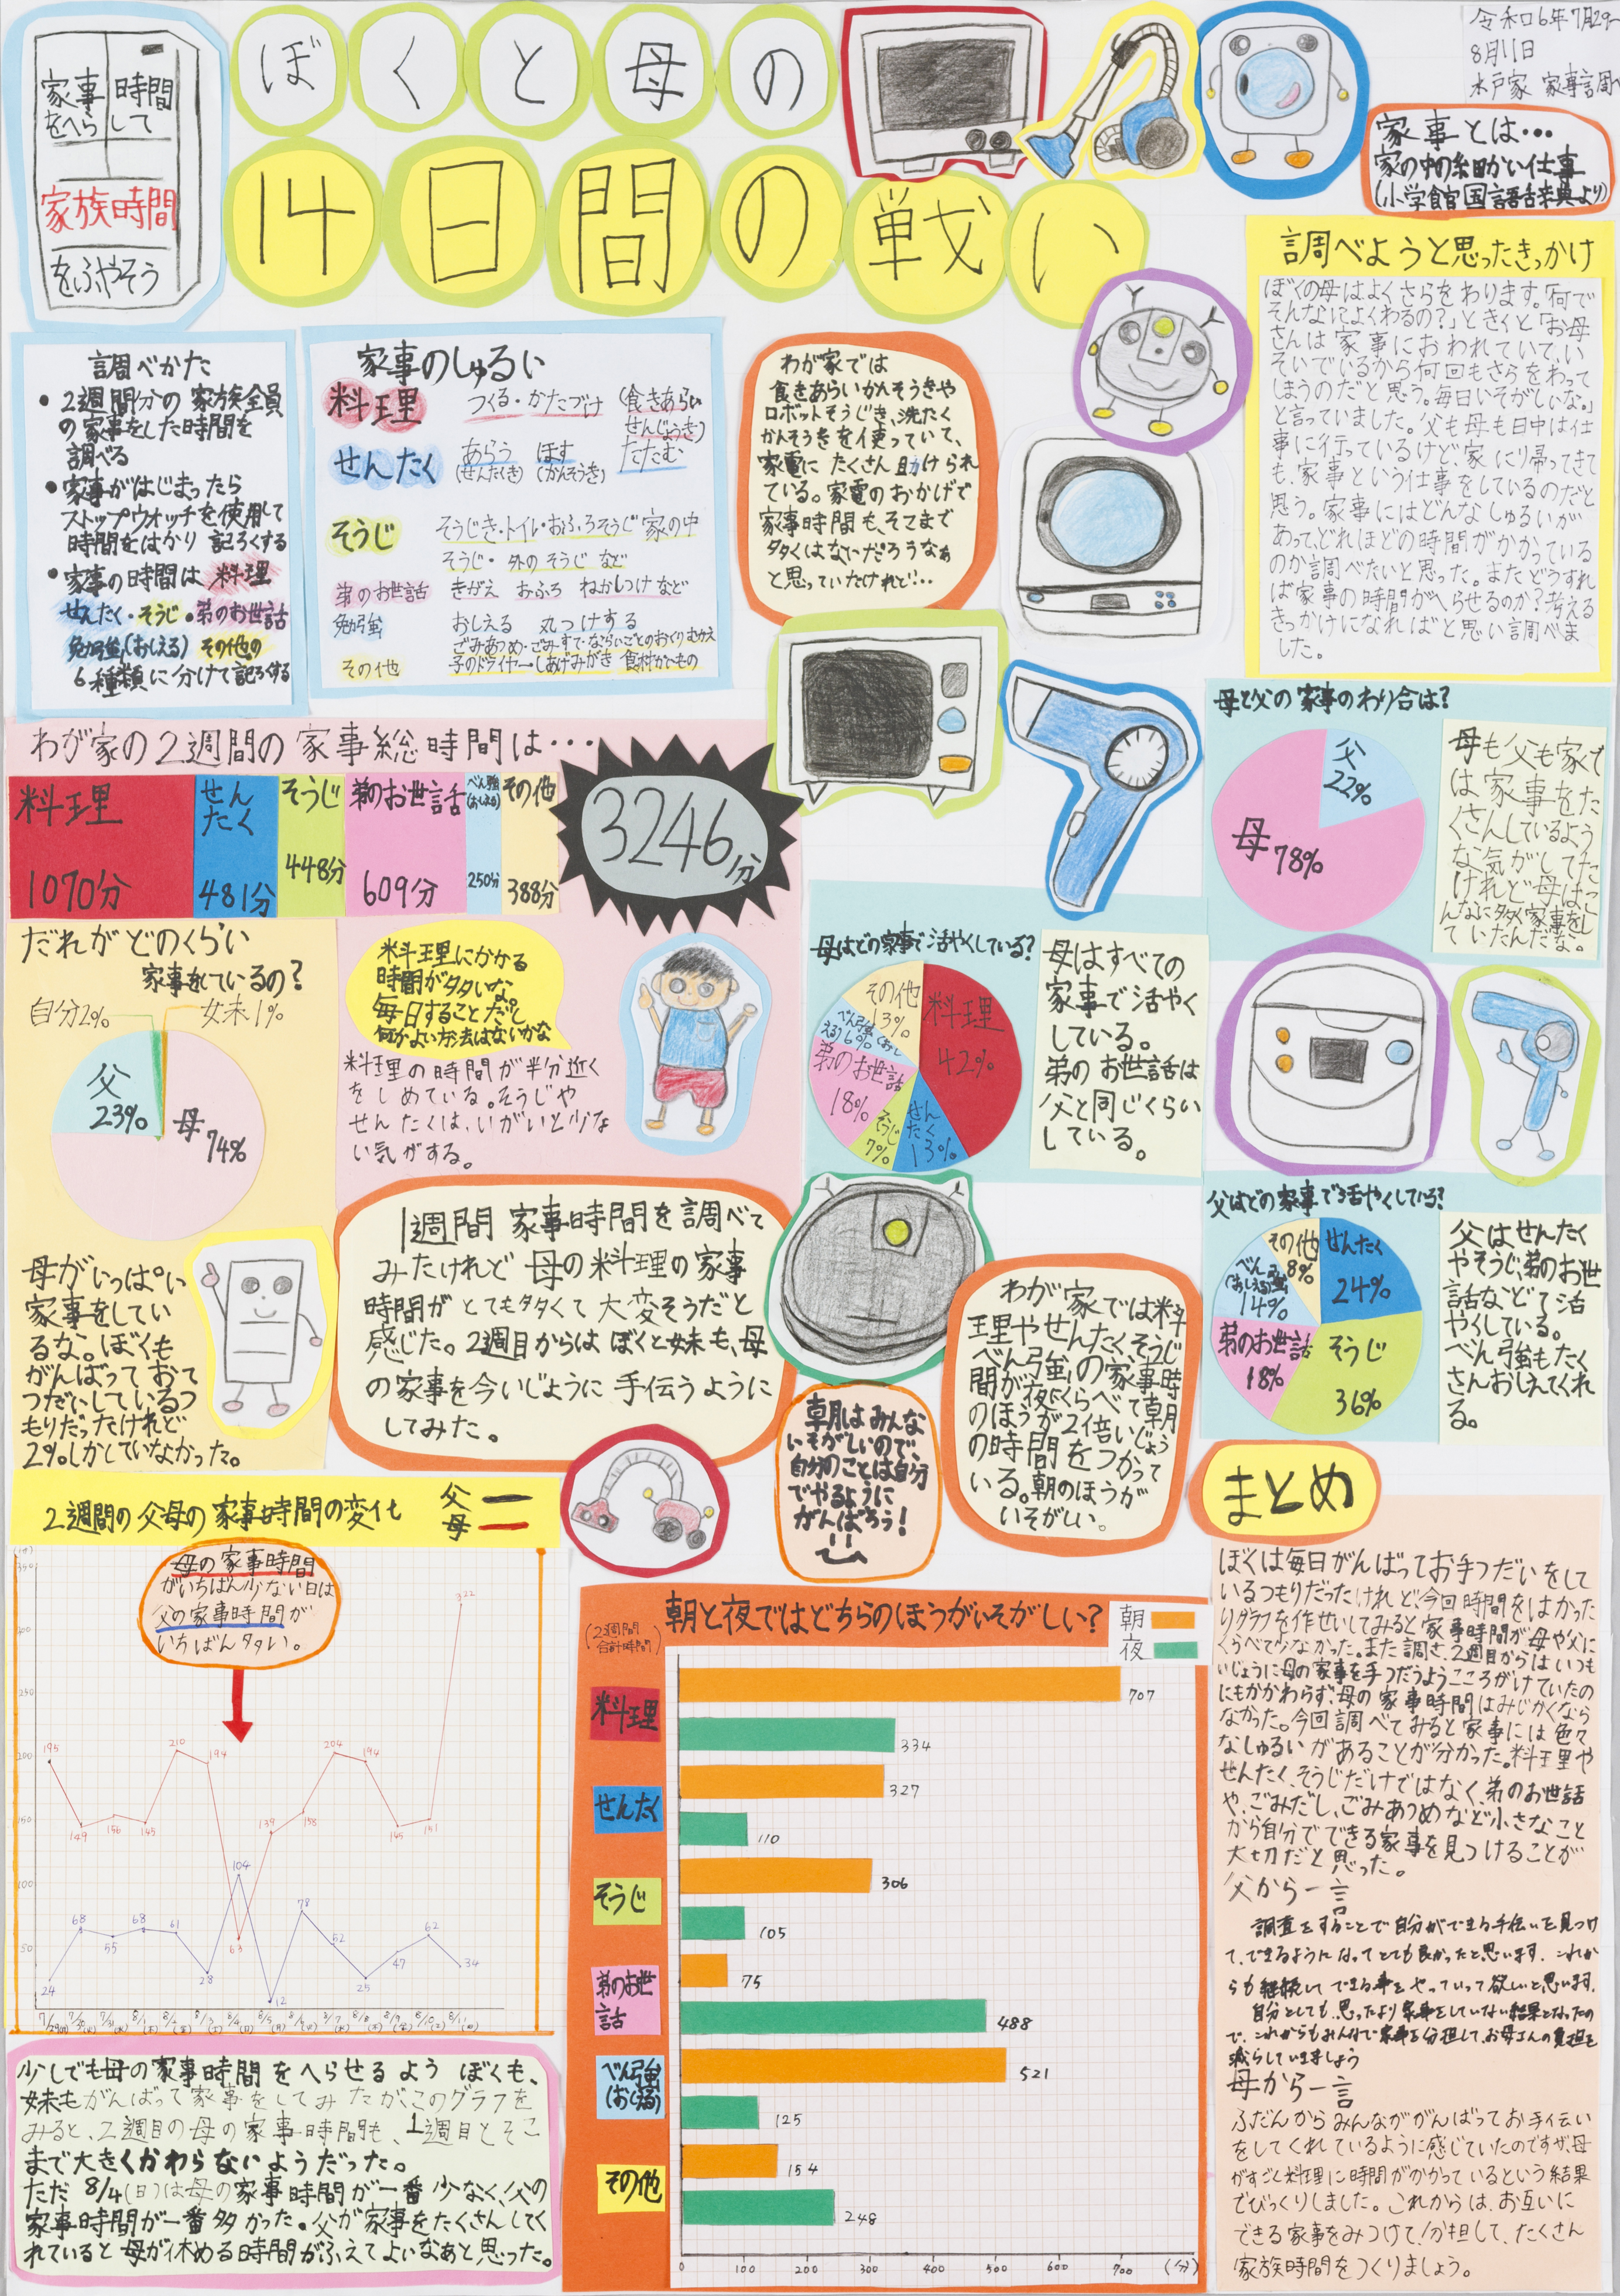 家事 時間
をへら して
家族時間
をふやそう
ぼくと母の
14日間の戦い
令和6年7月29〜
8月11日
水戸家 家事調べ
家事とは…
家の中の細かい仕事
(小学館国語辞典より)
調べようと思ったきっかけ
ぼくの母はよくさらをわります。「何で
そんなによくわるの?」ときくと「お母
さんは家事におわれていて、い
そいでいるから何回もさらをわって
しまうのだと思う。毎日いそがしいな。」
と言っていました。父も母も日中は仕
事に行っているけど、家に帰ってきて
も、家事という仕事をしているのだと
思う。家事にはどんなしゅるいが
あって、どれほどの時間がかかっている
のか調べたいと思った。またどうすれ
ば家事の時間がへらせるのか?考える
きっかけになればと思い調べま
した。
調べかた
・2週間分の家族全員
の家事をした時間を
調べる
・家事がはじまったら
ストップウォッチを使用して
時間をはかり記ろくする
・家事の時間は 料理
せんたく・そうじ・弟のお世話
勉強(おしえる) その他の
6種類に分けて記ろくする
家事のしゅるい
料理 つくる・かたづけ (食きあらい
せんじょうき)
せんたく あらう ほす たたむ
(せんたくき) (かんそうき)
そうじ そうじき・トイレ・おふろそうじ 家の中
そうじ・外のそうじ など
弟のお世話 きがえ おふろ ねかしつけ など
勉強 おしえる 丸つけする
その他 ごみあつめ・ごみすて・ならいごとのおくりむかえ
子のドライヤー・しあげみがき 食材かいもの
わが家では
食きあらいかんそうきや
ロボットそうじき、洗たく
かんそうきを使っていて、
家電にたくさん助けられ
ている。家電のおかげで
家事時間も、そこまで
多くはないだろうなぁ
と思っていたけれど…
わが家の2週間の家事総時間は…
料理 1070分
せんたく 481分
そうじ 448分
弟のお世話 609分
べん強(おしえる) 250分
その他 388分
3246分
母と父の家事のわり合は?
父 22%
母 78%
母も父も家で
は家事をた
くさんしているよう
な気がしてた
けれど母はこ
んなに多く家事をし
ていたんだな。
だれがどのくらい
家事をているの?
自分2% 妹1%
父 23%
母 74%
母がいっぱい
家事をしてい
るな。ぼくも
がんばっておて
つだいしているつ
もりだったけれど
2%しかしていなかった。
料理にかかる
時間が多いな
毎日することだし
何かよい方法はないかな
料理の時間が半分近く
をしめている。そうじや
せんたくは、いがいと少な
い気がする。
母はどの家事で活やくしている?
料理 42%
せんたく 13%
そうじ 7%
弟のお世話 18%
べん強(おしえる) 6%
その他 13%
母はすべての
家事で活やく
している。
弟のお世話は
父と同じくらい
している。
1週間 家事時間を調べて
みたけれど 母の料理の家事
時間がとても多くて大変そうだと
感じた。2週目からはぼくと妹も、母
の家事を今いじょうに手伝うように
してみた。
わが家では料
理やせんたく、そうじ
べん強の家事時
間が夜にくらべて朝
のほうが2倍いじょう
の時間をつかって
いる。朝のほうが
いそがしい。
朝はみんな
いそがしいので、
自分のことは自分
でやるように
がんばろう!
父はどの家事で活やくしている?
せんたく 24%
そうじ 36%
弟のお世話 18%
べん強(おしえる) 14%
その他 8%
父はせんたく
やそうじ、弟のお世
話などで活
やくしている。
べん強もたく
さんおしえてくれ
る。
2週間の父母の家事時間の変化
父
母
母の家事時間
がいちばん少ない日は
父の家事時間が
いちばん多い。
(分)
350
250
200
150
100
50
195 149 156 145 210 194 63 139 155 204 194 145 151 322
24 68 55 68 61 28 104 12 78 52 25 47 62 34
7/29(月) 7/30(火) 7/31(水) 8/1(木) 8/2(金) 8/3(土) 8/4(日) 8/5(月) 8/6(火) 8/7(水) 8/8(木) 8/9(金) 8/10(土) 8/11(日)
少しでも母の家事時間をへらせるよう ぼくも、
妹もがんばって家事をしてみたがこのグラフを
みると、2週目の母の家事時間も、1週目とそこ
まで大きくかわらないようだった。
ただ 8/4(日)は母の家事時間が一番少なく、父の
家事時間が一番多かった。父が家事をたくさんしてく
れていると母が休める時間がふえてよいなあと思った。
朝と夜ではどちらのほうがいそがしい?
(2週間
合計時間)
朝
夜
料理 707 334
せんたく 327 110
そうじ 306 105
弟のお世話 75 488
べん強(おしえる) 521 125
その他 154 248
0 100 200 300 400 500 600 700 (分)
まとめ
ぼくは毎日がんばってお手つだいをして
いるつもりだったけれど、今回時間をはかった
りグラフを作せいしてみると家事時間が母や父に
くらべて少なかった。また調さ、2週目からはいつも
いじょうに母の家事を手つだうようこころがけていたの
にもかかわらず、母の家事時間はみじかくなら
なかった。今回調べてみると家事には色々
なしゅるいがあることが分かった。料理や
せんたく、そうじだけではなく、弟のお世話
や、ごみだし、ごみあつめなど小さなこと
から自分でできる家事を見つけることが
大切だと思った。
父から一言
調査をすることで自分ができる手伝いを見つけ
て、できるようになってとても良かったと思います。これか
らも継続してできる事をやっていって欲しいと思います。
自分としても、思ったより家事をしていない結果となったの
で、これからもみんなで家事を分担して、お母さんの負担を
減らしていきましょう
母から一言
ふだんからみんながんばってお手伝い
をしてくれているように感じていたのですが、母
がすごく料理に時間がかかっているという結果
でびっくりしました。これからは、お互いに
できる家事をみつけて、分担して、たくさん
家族時間をつくりましょう。